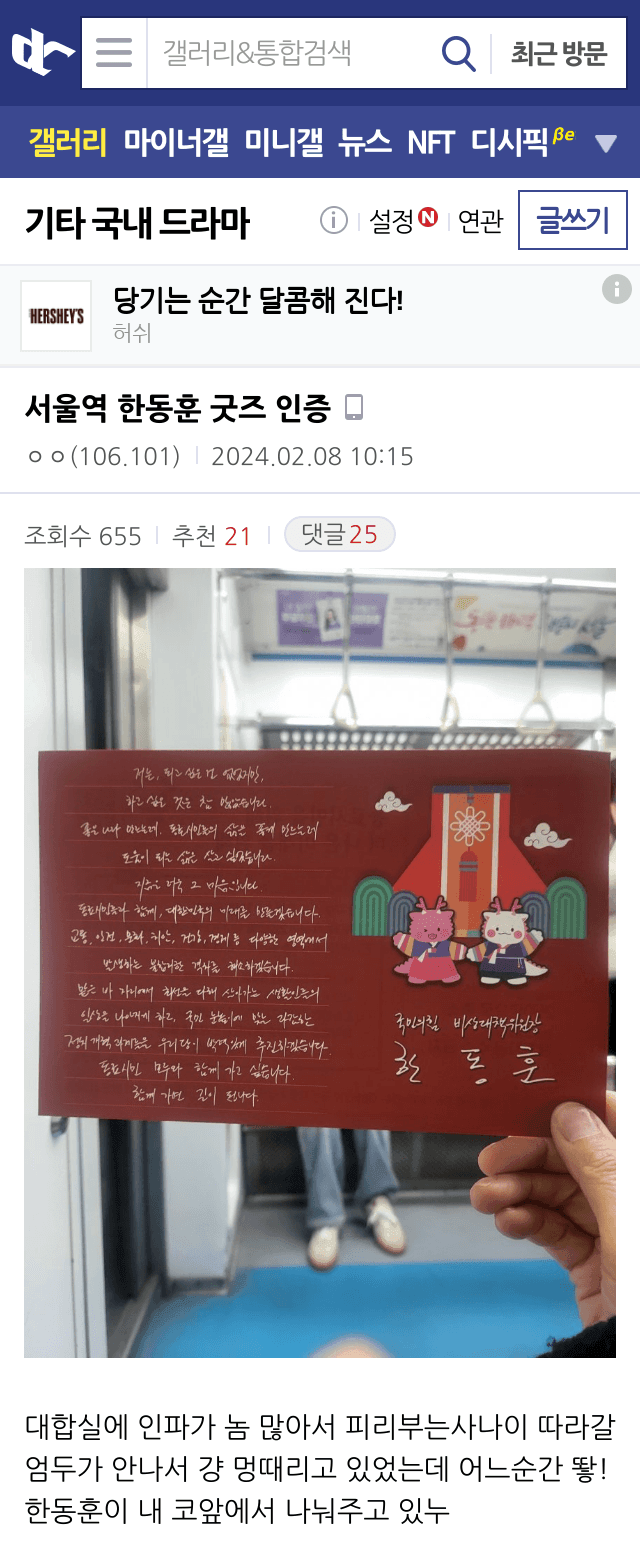 갤러리&통합검색
최근 방문
갤러리 마이너갤 미니갤 뉴스 NFT 디시픽 βe
기타 국내 드라마
설정 N 연관 글쓰기
HERSHEY'S
당기는 순간 달콤해 진다!
허쉬
서울역 한동훈 굿즈 인증
ㅇㅇ(106.101) 2024.02.08 10:15
조회수 655 추천 21 댓글 25
저는, 되고 싶은 건 없었지만,
하고 싶은 것은 참 많았습니다.
좋은 나라 만드는데, 동료시민들의 삶을 좋게 만드는데
도움이 되는 삶을 살고 싶었습니다.
지금은 더욱 그 마음입니다
동료시민들과 함께, 대한민국의 미래를 만들겠습니다.
교통, 안전, 문화, 치안, 건강, 경제 등 다양한 영역에서
발생하는 불합리한 격차를 해소하겠습니다.
맡은 바 자리에서 최선을 다해 살아가는 생활인들의
일상을 나아지게 하고, 국민 눈높이에 맞는
정치개혁 과제들을 우리 당이 추진하겠습니다.
동료시민 모두와 함께 가고 싶습니다.
함께 가면 길이 됩니다.
국민의힘 비상대책위원장
한동훈
대합실에 인파가 놈 많아서 피리부는사나이 따라갈
엄두가 안나서 걍 멍때리고 있었는데 어느순간 뙇!
한동훈이 내 코앞에서 나눠주고 있누